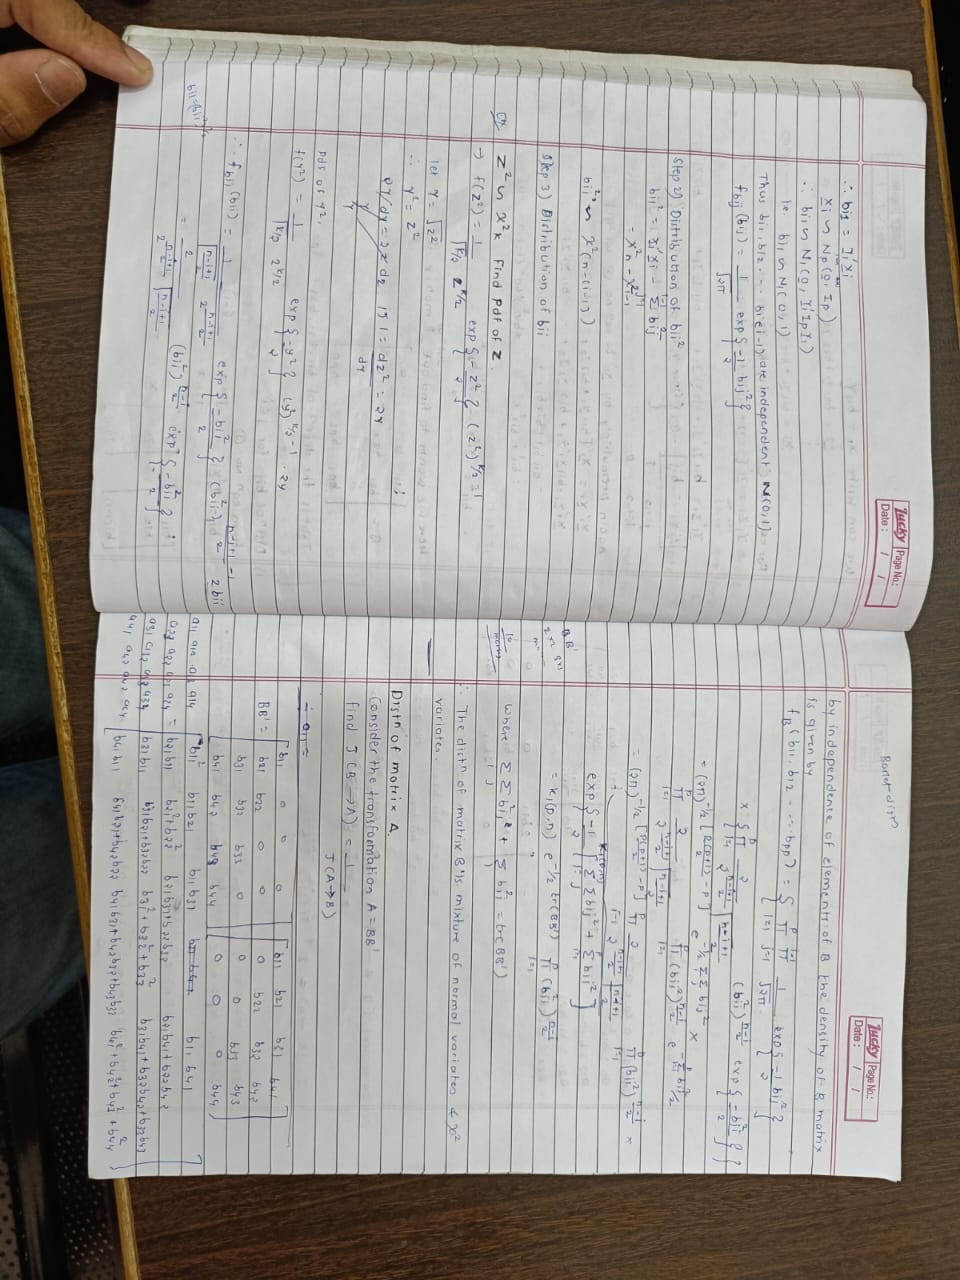 Lucky Page No.:
Date : / /
∴ bi1 = Y1' Xi
Xi ~ Np(0, Ip)
∴ bi1 ~ N1(0, Y1' Ip Y1)
i.e. bi1 ~ N1(0, 1)
Thus bi1, bi2 ... bi(i-1) are independent N(0,1).
fbij (bij) = 1/√2π exp{-1/2 bij²}
Step 2) Distribution of bii²
bii² = Xi' Xi - Σ bij²
= χ²n - χ²i-1
bii² ~ χ²(n-(i-1))
Step 3) Distribution of bii
Ex. Z² ~ χ²k Find pdf of Z.
→ f(Z²) = 1/(Γk/2 2^k/2) exp{-Z²/2} (Z²)^(k/2 -1)
let Y = √Z²
∴ Y² = Z²
2Y dy = 2z dz |J| = dz²/dY = 2Y
Pdf of Y²,
f(Y²) = 1/(Γk/2 2^k/2) exp{-y²/2} (y²)^(k/2 -1) . 2y
∴ fbii (bii) = 1/(Γ(n-i+1)/2 2^(n-i+1)/2) exp{-bii²/2} (bii²)^((n-i+1)/2 -1) 2bii
= 2/(2^(n-i+1)/2 Γ(n-i+1)/2) (bii²)^((n-i)/2) exp{-bii²/2}
Barlet distn
Lucky Page No.:
Date : / /
by independence of elements of B the density of B matrix
is given by
fB (b11, b12 ... bpp) = { Π Π 1/√2π exp{-1/2 bij²}
x { Π 2/(2^(n-i+1)/2 Γ(n-i+1)/2) (bii²)^((n-i)/2) exp{-bii²/2} }
= (2π)^(-1/2 [p(p+1)/2 - p]) e^(-1/2 ΣΣ bij²) x
Π 2/(2^(n-i+1)/2 Γ(n-i+1)/2) Π (bii²)^((n-i)/2) e^(-Σ bii²/2)
= (2π)^(-1/2 [p(p+1)/2 - p]) Π 2/(2^(n-i+1)/2 Γ(n-i+1)/2) Π (bii²)^((n-i)/2) x
K1(p,n)
exp{-1/2 [ΣΣ bij² + Σ bii²]
= K1(p,n) e^(-1/2 tr(BB')) Π (bii²)^((n-i)/2)
where ΣΣ bij² + Σ bii² = tr(BB')
∴ The distn of matrix B is mixture of normal variates & χ²
variates.
Distn of matrix A.
Consider the transformation A = BB'
find J (B → A) = 1/J(A → B)
∴ a11 =
BB' = [b11 0 0 0 [b11 b21 b31 b41
b21 b22 0 0 0 b22 b32 b42
b31 b32 b33 0 0 0 b33 b43
b41 b42 b43 b44] 0 0 0 b44]
a11 a12 a13 a14 [b11² b11b21 b11b31 b11b41
b21b11 b21²+b22² b21b31+b22b32 b21b41+b22b42
b31b11 b31b21+b32b22 b31²+b32²+b33² b31b41+b32b42+b33b43
b41b11 b41b21+b42b22 b41b31+b42b32+b43b33 b41²+b42²+b43²+b44²]